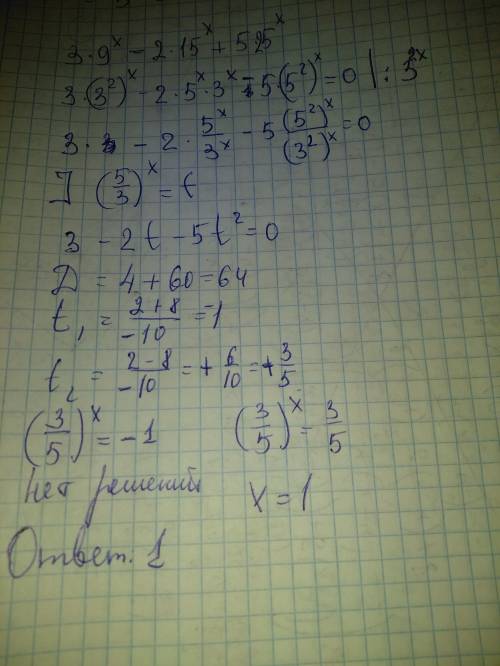 3·9^x − 2·15^x + 5 25^x
3·(3²)^x − 2·5^x·3^x − 5·(5²)^x = 0 | : 3^2x
3· − 2· 5^x/3^x − 5 (5²)^x/(3²)^x = 0
] (5/3)^x = t
3 − 2t − 5t² = 0
D = 4 + 60 = 64
t₁ = (2+8)/−10 = −1
t₂ = (2−8)/−10 = + 6/10 = + 3/5
(3/5)^x = −1 (3/5)^x = 3/5
нет решений x = 1
Ответ. 1